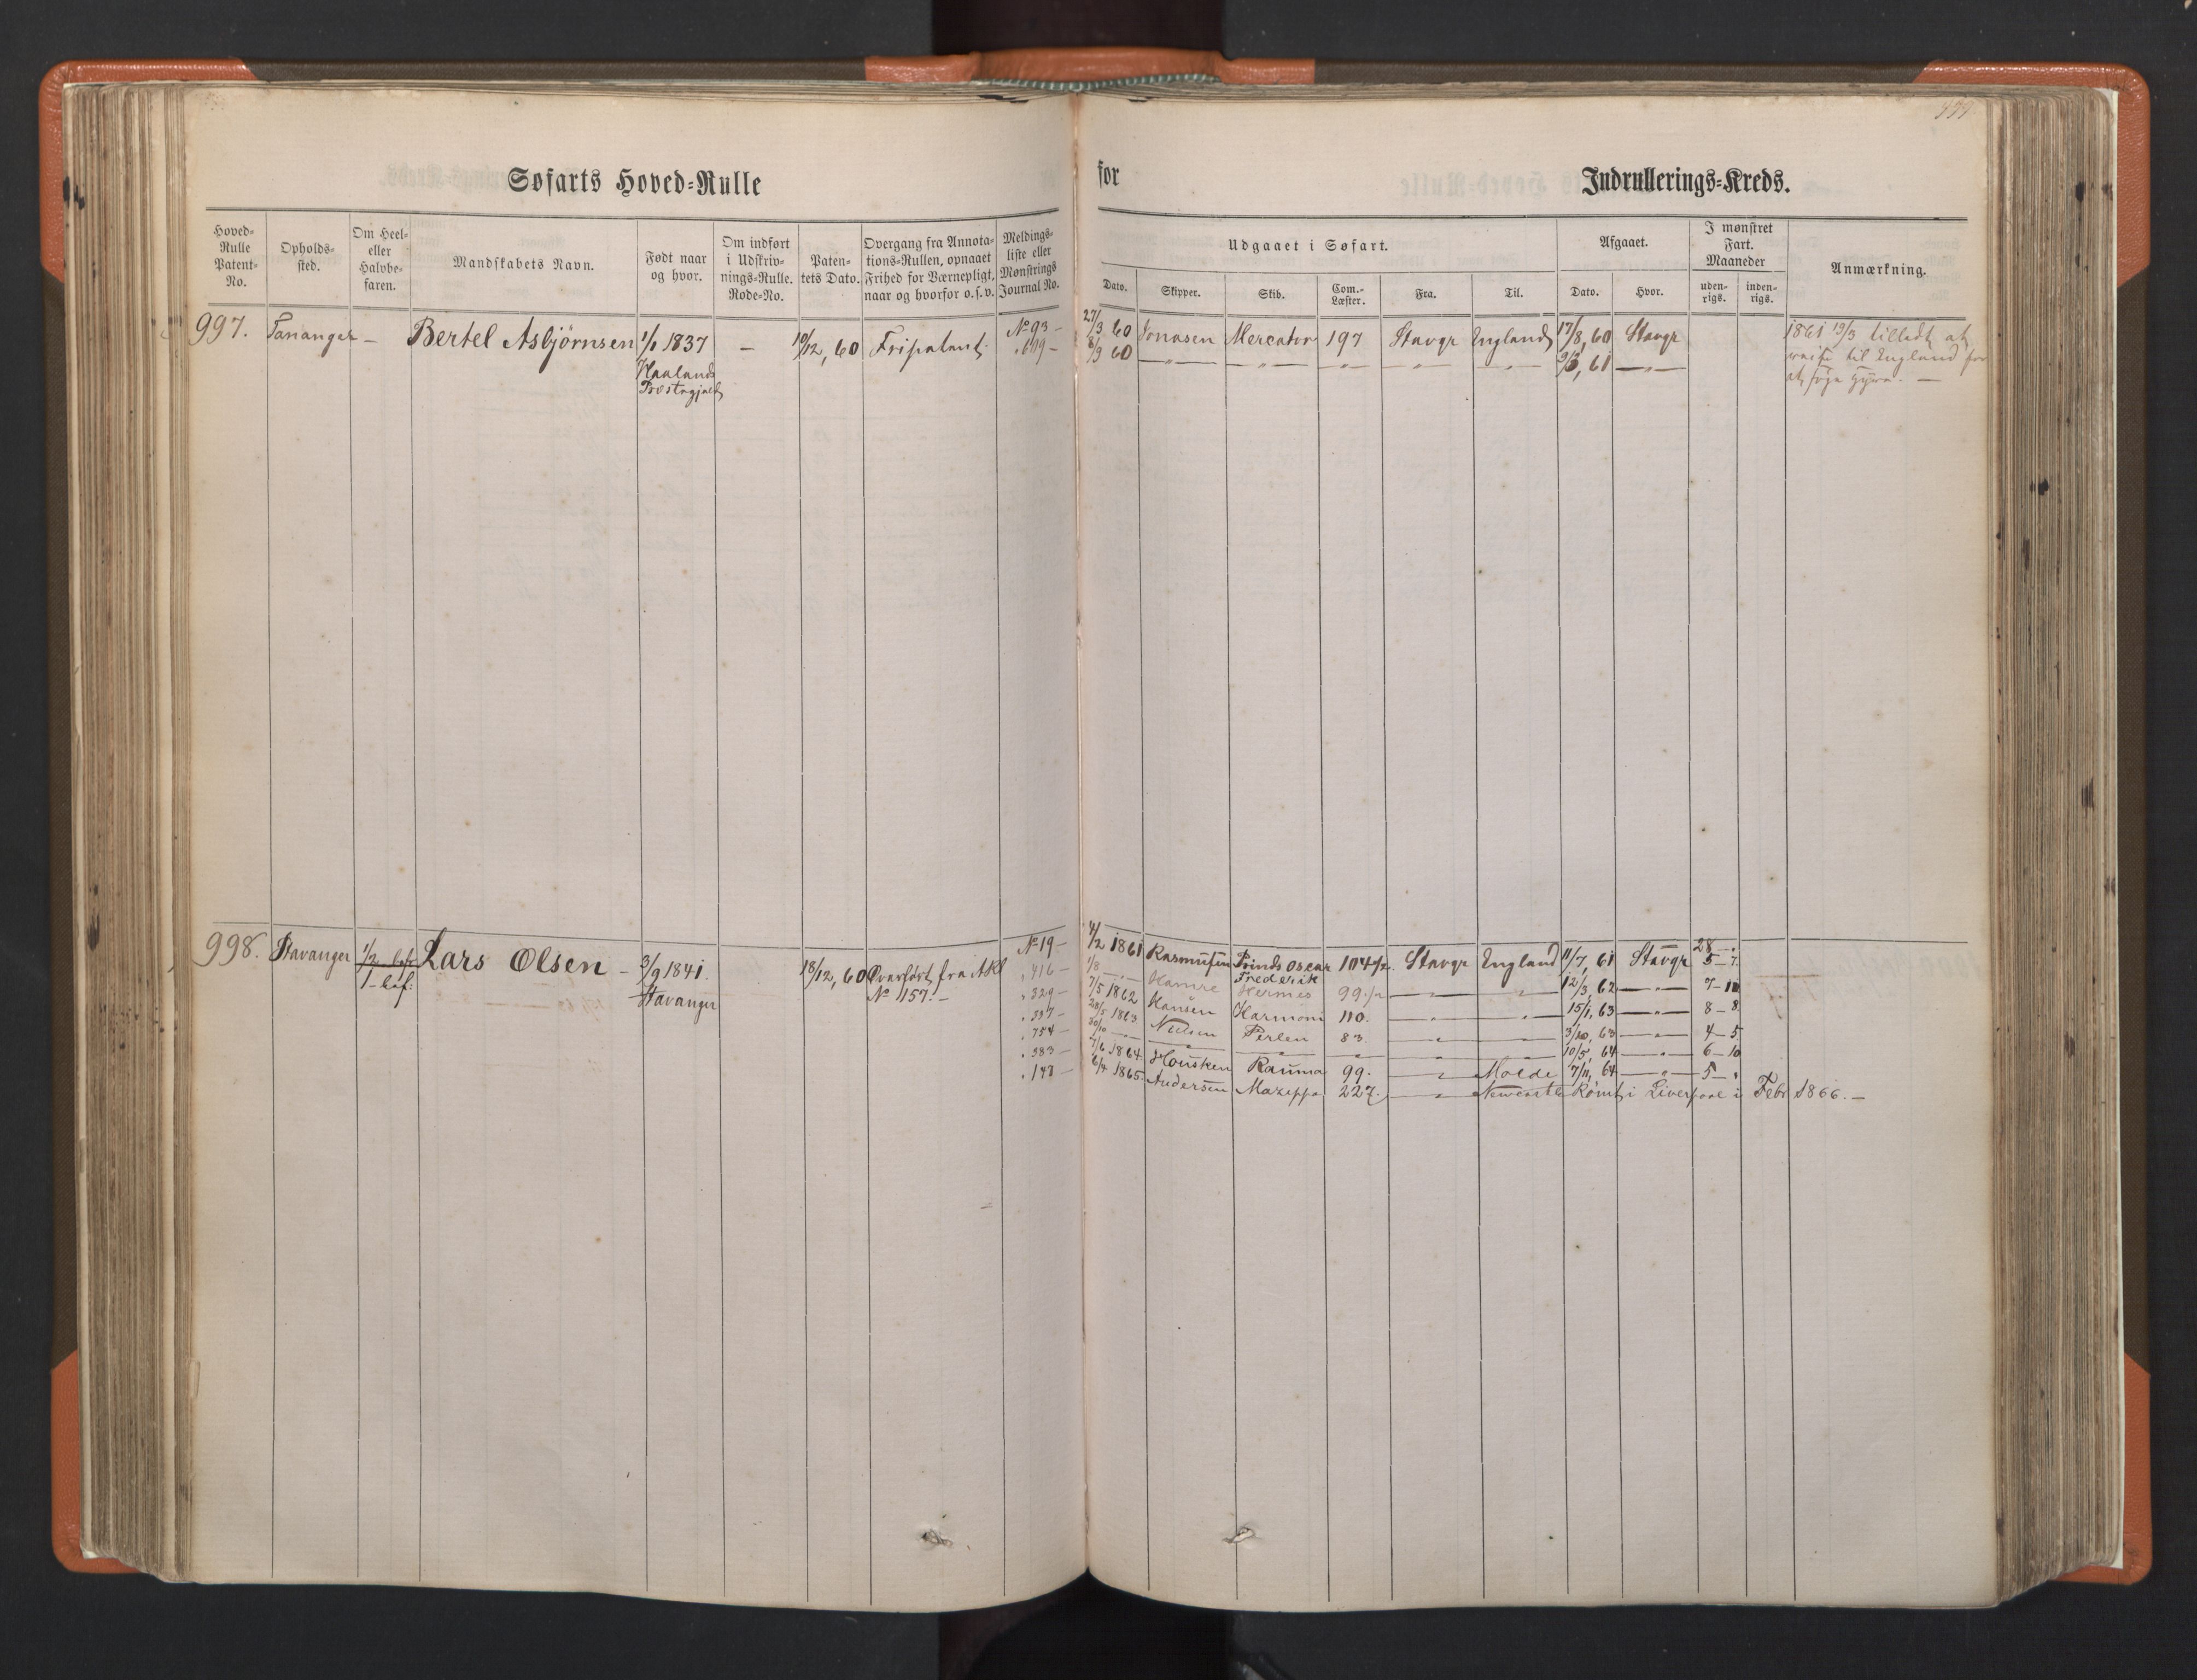 499
Søfarts Hoved-Rulle for Indrullerings-Kreds.
Hoved-Rulle Patent-No.
Opholds-sted.
Om Heel- eller Halvbe-faren.
Mandskabets Navn.
Født naar og hvor.
Om indført i Udskriv-nings-Rulle. Rode-No.
Paten-tets Dato.
Overgang fra Annota-tions-Rullen, opnaaet Frihed for Værnepligt, naar og hvorfor o. s. v.
Meldings-liste eller Mønstrings Journal No.
Udgaaet i Søfart.
Dato. Skipper. Skib. Com.-Læster. Fra. Til.
Afgaaet.
Dato. Hvor.
I mønstret Fart. Maaneder
uden-rigs. inden-rigs.
Anmærkning.
997. Tananger – Bertel Asbjørnsen 1/1 1837 – 10/12, 60 Fripatent. No 93 – 27/3 60 Jonasen Mercator 197 Stavgr England 17/8, 60 Stavgr 1861 19/3 tilladt at
Haalands „ 619 – 8/9 60 — „ — — „ — — „ — — „ — — „ — 9/3, 61 — „ — reise til England for
Præstegjæld at søge Hyre. —
998. Stavanger 1/2 bef. Lars Olsen – 3/9 1841. 18/12, 60 Overført fra AR No 19 – 4/2 1861 Rasmusen Prinds Oscar 104 1/2. Stavgr England 11/7, 61 Stavgr 5 – 7.
1 – bef: Stavanger No 1157. – „ 416 – 1/8 — „ — Hamre Frederik
Hermes 99 1/2 — „ — „ 12/3, 62 — „ — 7 – 10
„ 329 – 7/5 1862 Hansen Harmoni 110. — „ — „ 15/1, 63 — „ — 8 – 8
„ 337 – 28/5 1863 Nielsen Perlen 83. — „ — „ 3/10, 63 — „ — 4 – 5
„ 754 – 30/10 — „ — „ — „ — „ — „ 10/5, 64 — „ — 6 – 10
„ 383 – 7/6 1864 Housken Rauma 99. — „ — Molde 7/11, 64 — „ — 5 – „
„ 148 – 6/4 1865. Andersen Mazeppa 227. — „ — Newcastle Rømt i Liverpool i Febr 1866. —
28 – „